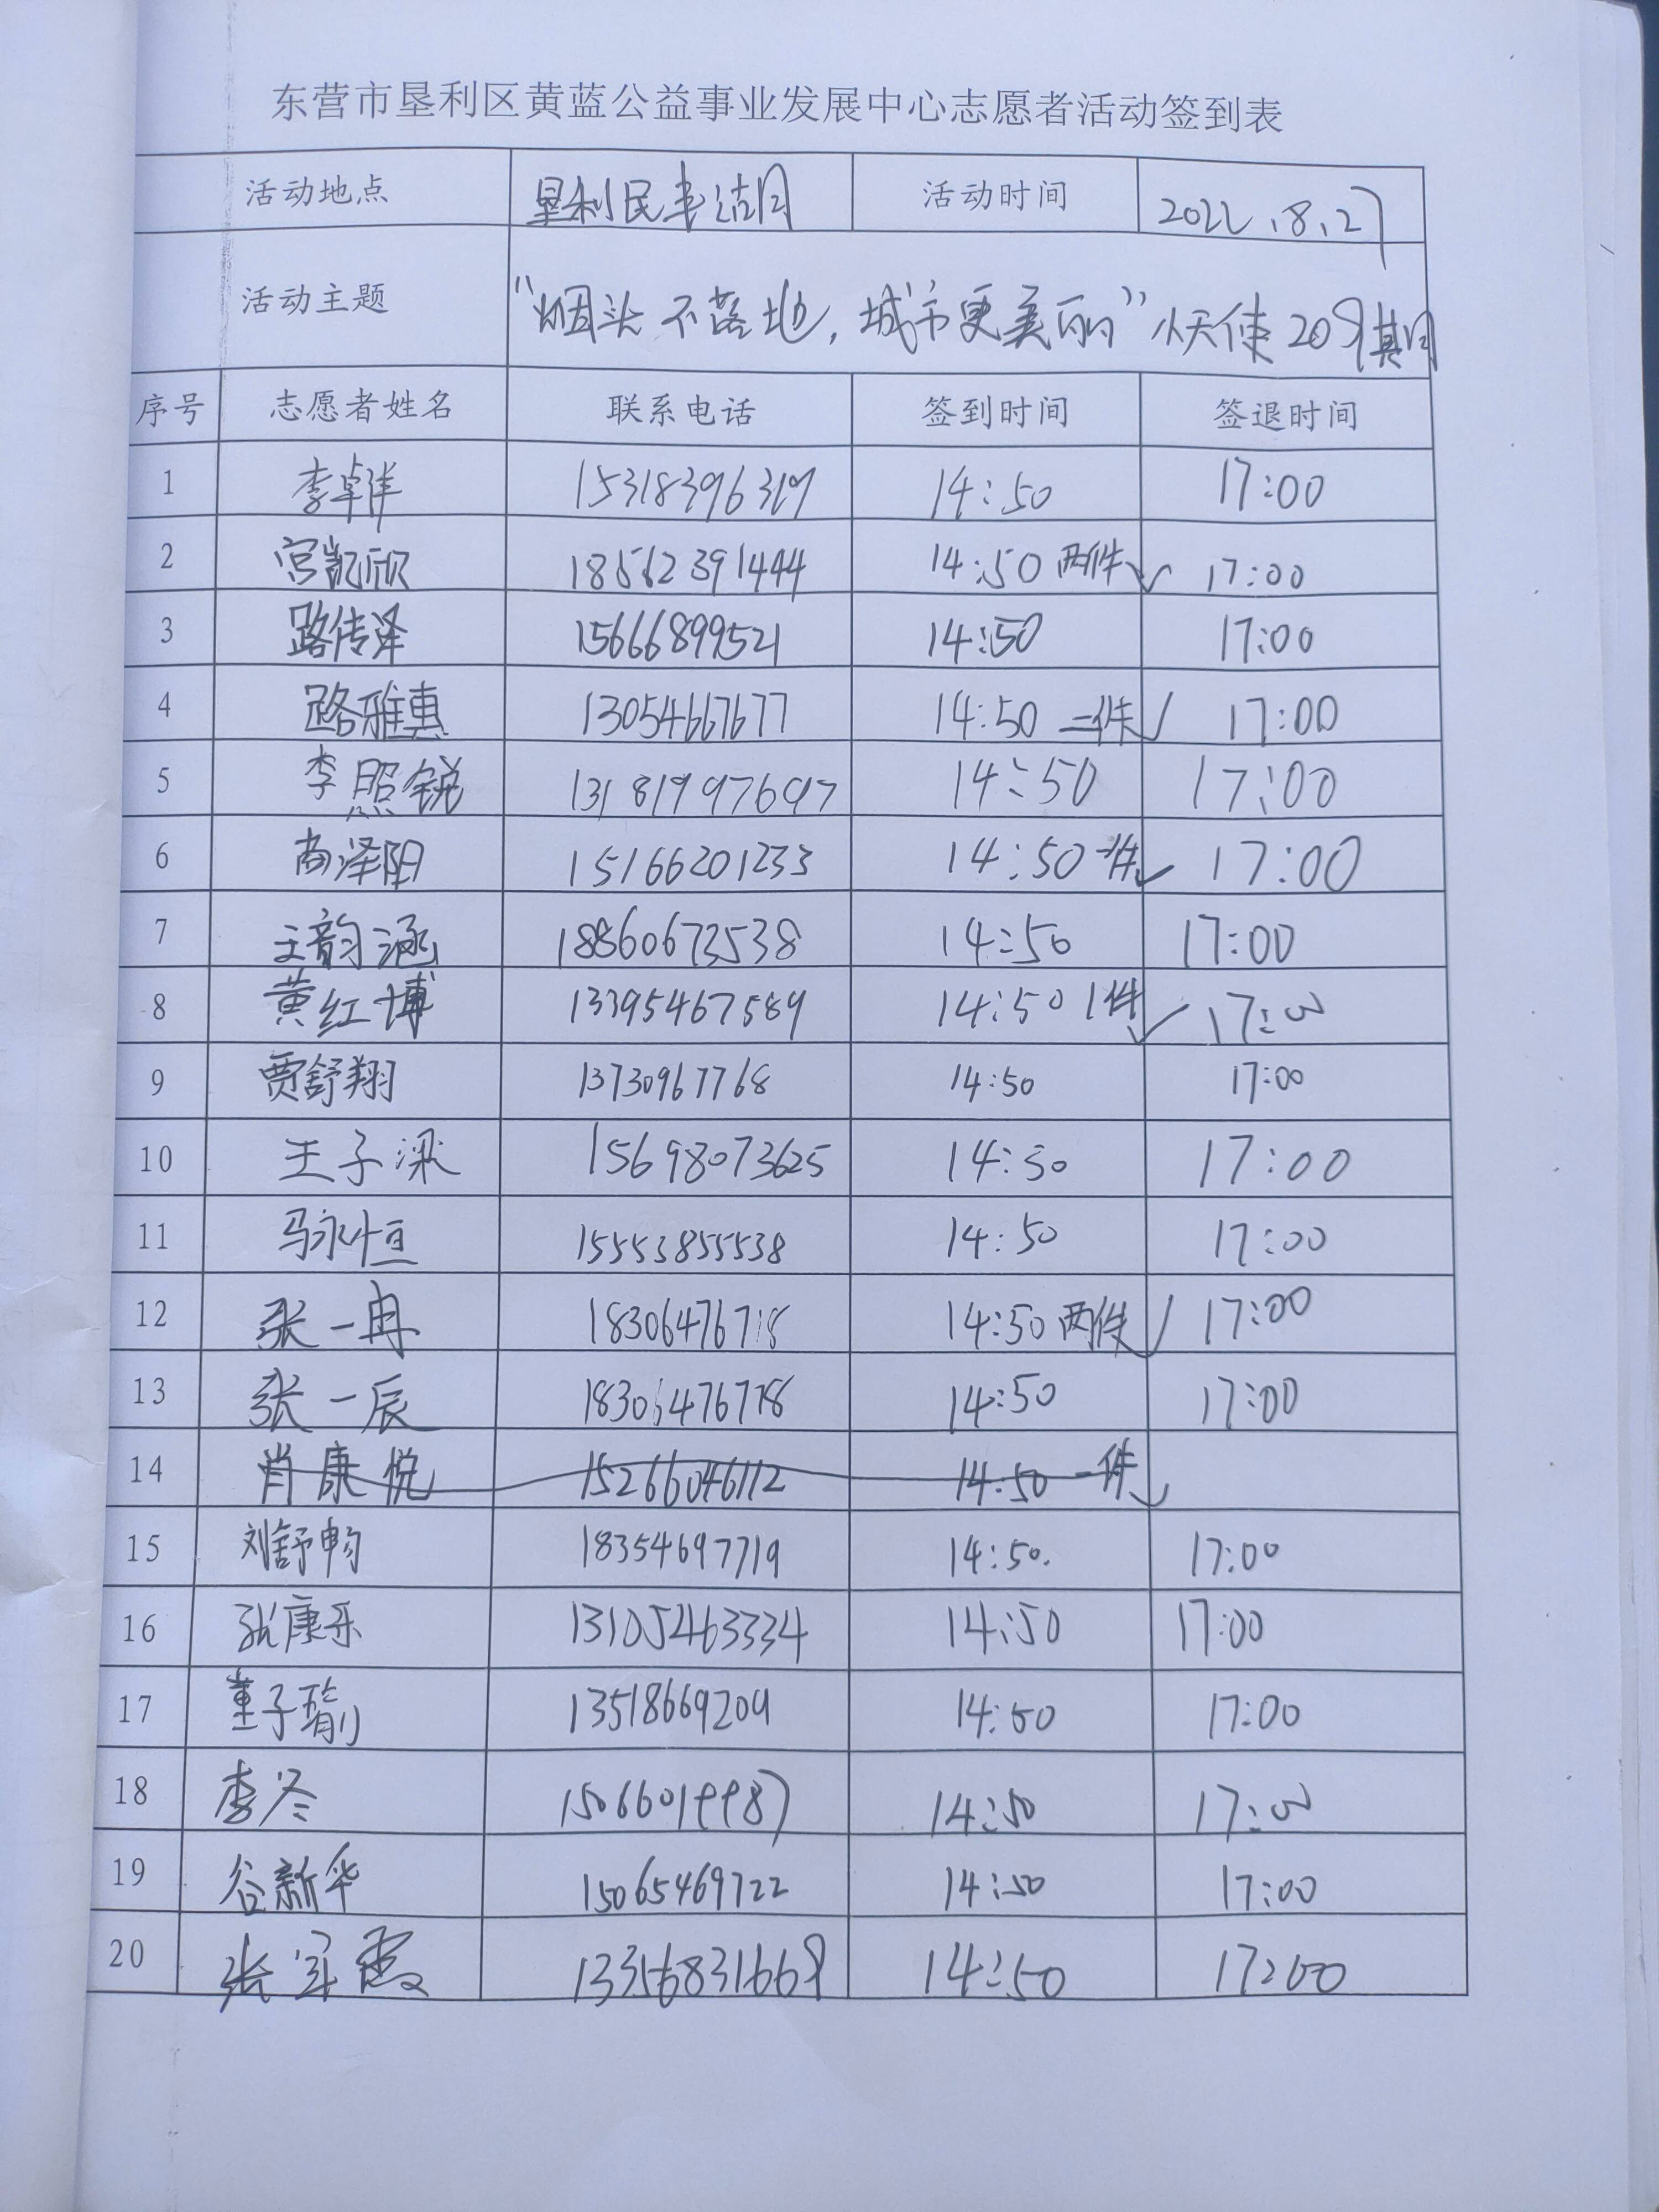 东营市垦利区黄蓝公益事业发展中心志愿者活动签到表
活动地点 垦利民丰湖 活动时间 2022.8.27
活动主题 “烟头不落地,城市更美丽”小天使209期
序号 志愿者姓名 联系电话 签到时间 签退时间
1 李卓洋 15318396319 14:50 17:00
2 宫凯欣 18562391444 14:50 两件 √ 17:00
3 路传泽 15666899521 14:50 17:00
4 路雅惠 13054667677 14:50 二件 √ 17:00
5 李照锐 13181997697 14:50 17:00
6 尚泽阳 15166201233 14:50 一件 √ 17:00
7 王韵涵 18860673538 14:50 17:00
8 黄红博 13395467589 14:50 1件 √ 17:00
9 贾舒翔 13730967768 14:50 17:00
10 王子梁 15698073625 14:50 17:00
11 马永恒 15553855538 14:50 17:00
12 张一冉 18306476718 14:50 两件 √ 17:00
13 张一辰 18306476718 14:50 17:00
14 肖康悦 15266046112 14:50 一件 √
15 刘舒畅 18354697719 14:50. 17:00
16 张康乐 13105463334 14:50 17:00
17 董子瑜 13518669209 14:50 17:00
18 李冬 15066019987 14:50 17:00
19 谷新华 15065469722 14:50 17:00
20 张军霞 13356831669 14:50 17:00